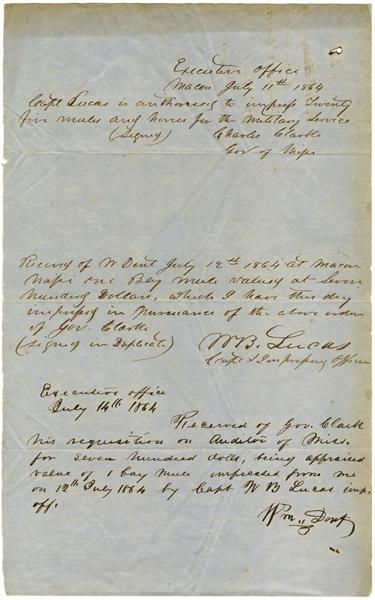 Executive Office
Macon July 11th 1864
Capt Lucas is authorised to impress Twenty
five mules and horses for the Military Service
(Signed) Charles Clark
Gov of Missi
Received of W Dent July 12th 1864 at Macon
Missi one Bay Mule valued at Seven
Hundred Dollars, which I have this day
impressed in Pursuance of the above order
of Gov. Clark
(Signed in Duplicate) W B. Lucas
Capt & Impressing Officer
Executive office
July 14th 1864
Received of Gov. Clark
his requisition on Auditor of Miss.
for Seven Hundred dolls, being appraised
value of 1 bay mule impressed from me
on 12th July 1864 by Capt W B Lucas imp.
off.
Wm Dent